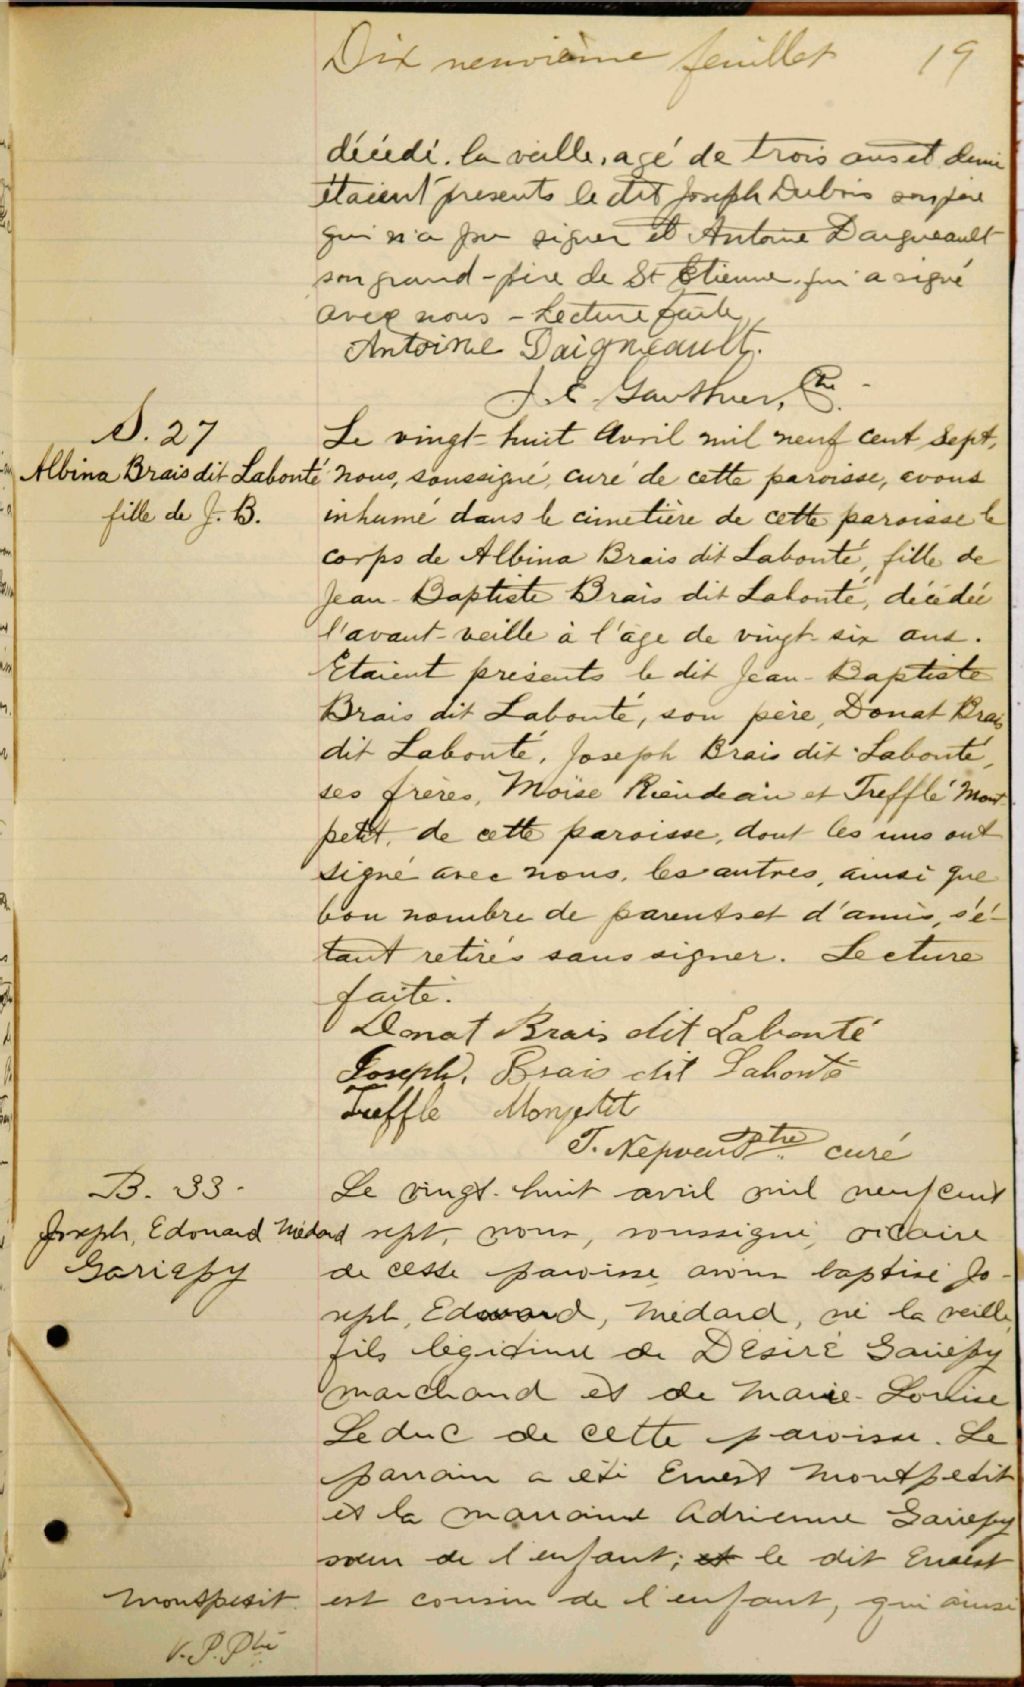 Dix neuvième feuillet 19
décédé la veille, agé de trois ans et demi
étaient présents le dit Joseph Dubois son père
qui n'a pu signer et Antoine Daigneault
son grand-père de St Etienne qui a signé
avec nous - Lecture faite
Antoine Daigneault.
J. E. Gauthier, Ptre.
S. 27
Albina Brais dit Labonté
fille de J. B.
Le vingt-huit Avril mil neuf cent sept,
nous, soussigné, curé de cette paroisse, avons
inhumé dans le cimetière de cette paroisse le
corps de Albina Brais dit Labonté, fille de
Jean-Baptiste Brais dit Labonté, décédée
l'avant-veille à l'âge de vingt-six ans.
Etaient présents le dit Jean-Baptiste
Brais dit Labonté, son père, Donat Brais
dit Labonté, Joseph Brais dit Labonté,
ses frères, Moïse Riendeau et Trefflé Mont
petit, de cette paroisse, dont les uns ont
signé avec nous, les autres, ainsi que
bon nombre de parents et d'amis, s'é-
tant retirés sans signer. Lecture
faite.
Donat Brais dit Labonté
Joseph. Brais dit Labonté
Treffle Monpetit
T. Nepveu Ptre curé
B. 33.
Joseph, Edouard Médard
Gariépy
Le vingt-huit avril mil neuf cent
sept, nous, soussigné, vicaire
de cette paroisse avons baptisé Jo-
seph, Edouard, Médard, né la veille,
fils légitime de Désiré Gariépy
marchand et de Marie-Louise
Leduc de cette paroisse. Le
parrain a été Ernest Montpetit
et la marraine Adrienne Gariépy
soeur de l'enfant; et le dit Ernest
Montpetit est cousin de l'enfant, qui ainsi
V. P. Ptre